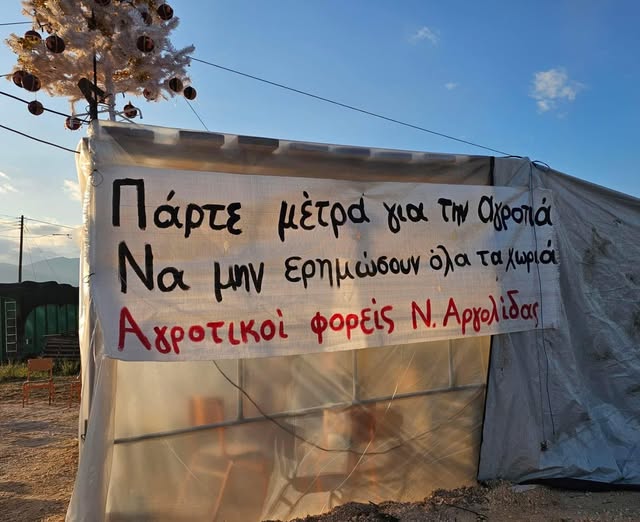 Πάρτε μέτρα για την Αγροτιά
Να μην ερημώσουν όλα τα χωριά
Αγροτικοί φορείς Ν. Αργολίδας